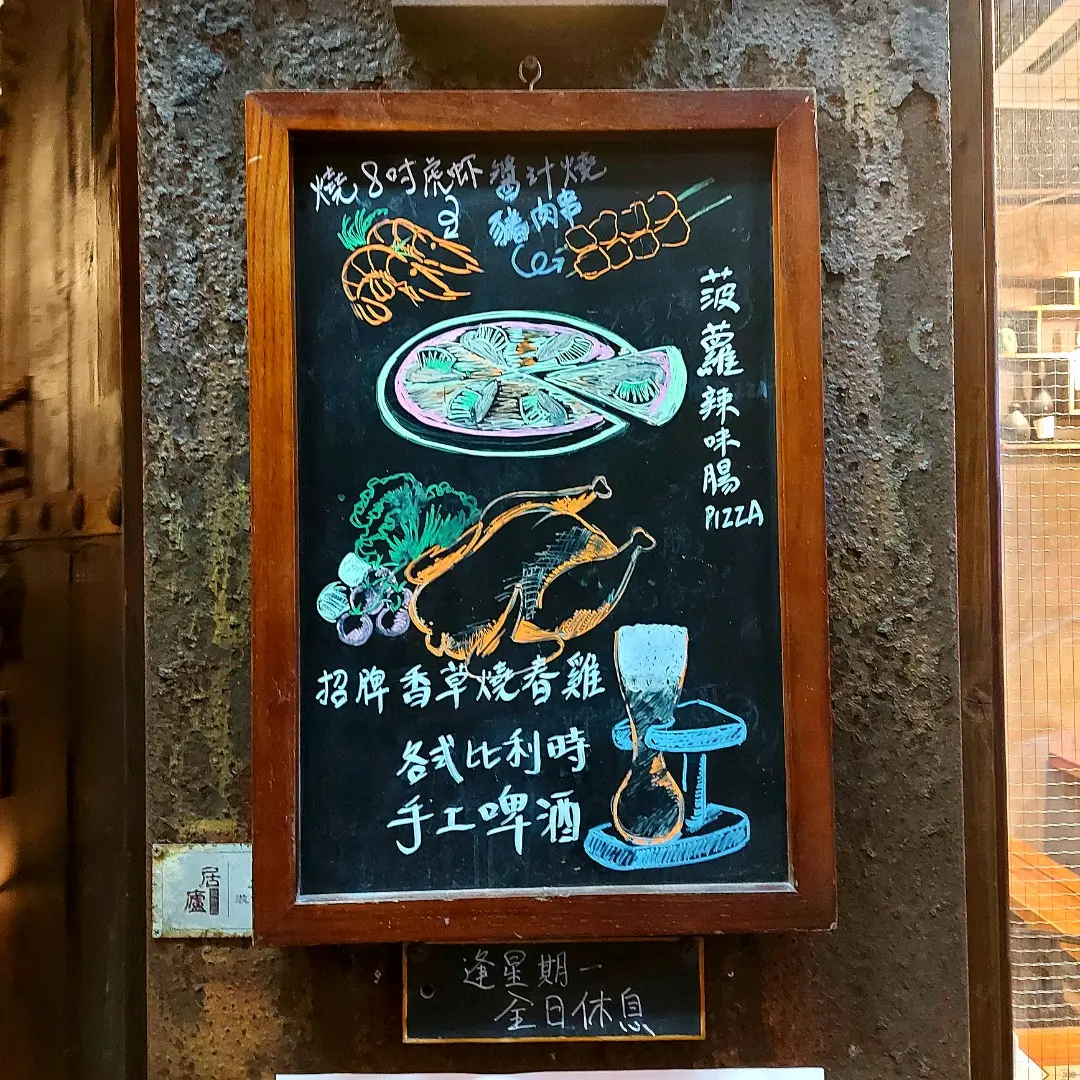 燒8吋虎虾
醬汁燒
豬肉串
菠蘿辣味腸PIZZA
招牌香草燒春雞
各式比利時
手工啤酒
居廬
逢星期一
全日休息